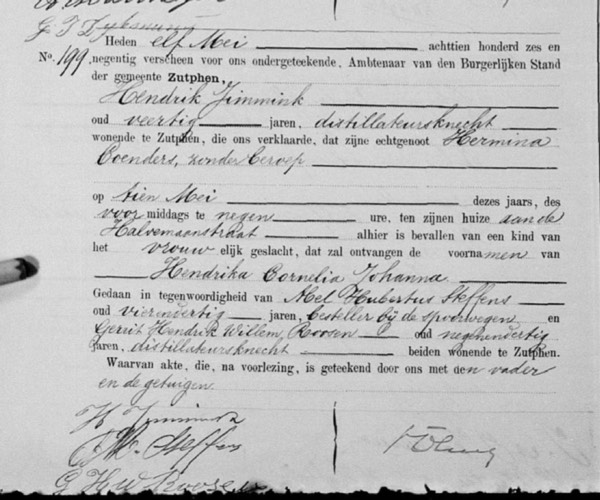 G J Dyksming
Heden elf Mei achttien honderd zes en
No. 199. negentig verscheen voor ons ondergeteekende, Ambtenaar van den Burgerlijken Stand
der gemeente Zutphen,
Hendrik Jimmink
oud veertig jaren, distillateursknecht
wonende te Zutphen, die ons verklaarde, dat zijne echtgenoot Hermina
Coenders, zonder beroep
op tien Mei dezes jaars, des
voor middags te negen ure, ten zijnen huize aan de
Halvemaanstraat alhier is bevallen van een kind van
het vrouw elijk geslacht, dat zal ontvangen de voornamen van
Hendrika Cornelia Johanna
Gedaan in tegenwoordigheid van Mel Hubertus Steffens
oud vierendertig jaren, besteller bij de spoorwegen en
Gerrit Hendrik Willem Roosen oud negenendertig
jaren, distillateursknecht beiden wonende te Zutphen.
Waarvan akte, die, na voorlezing, is geteekend door ons met den vader
en de getuigen
H Jimmink
Steffens
G H W Roosen